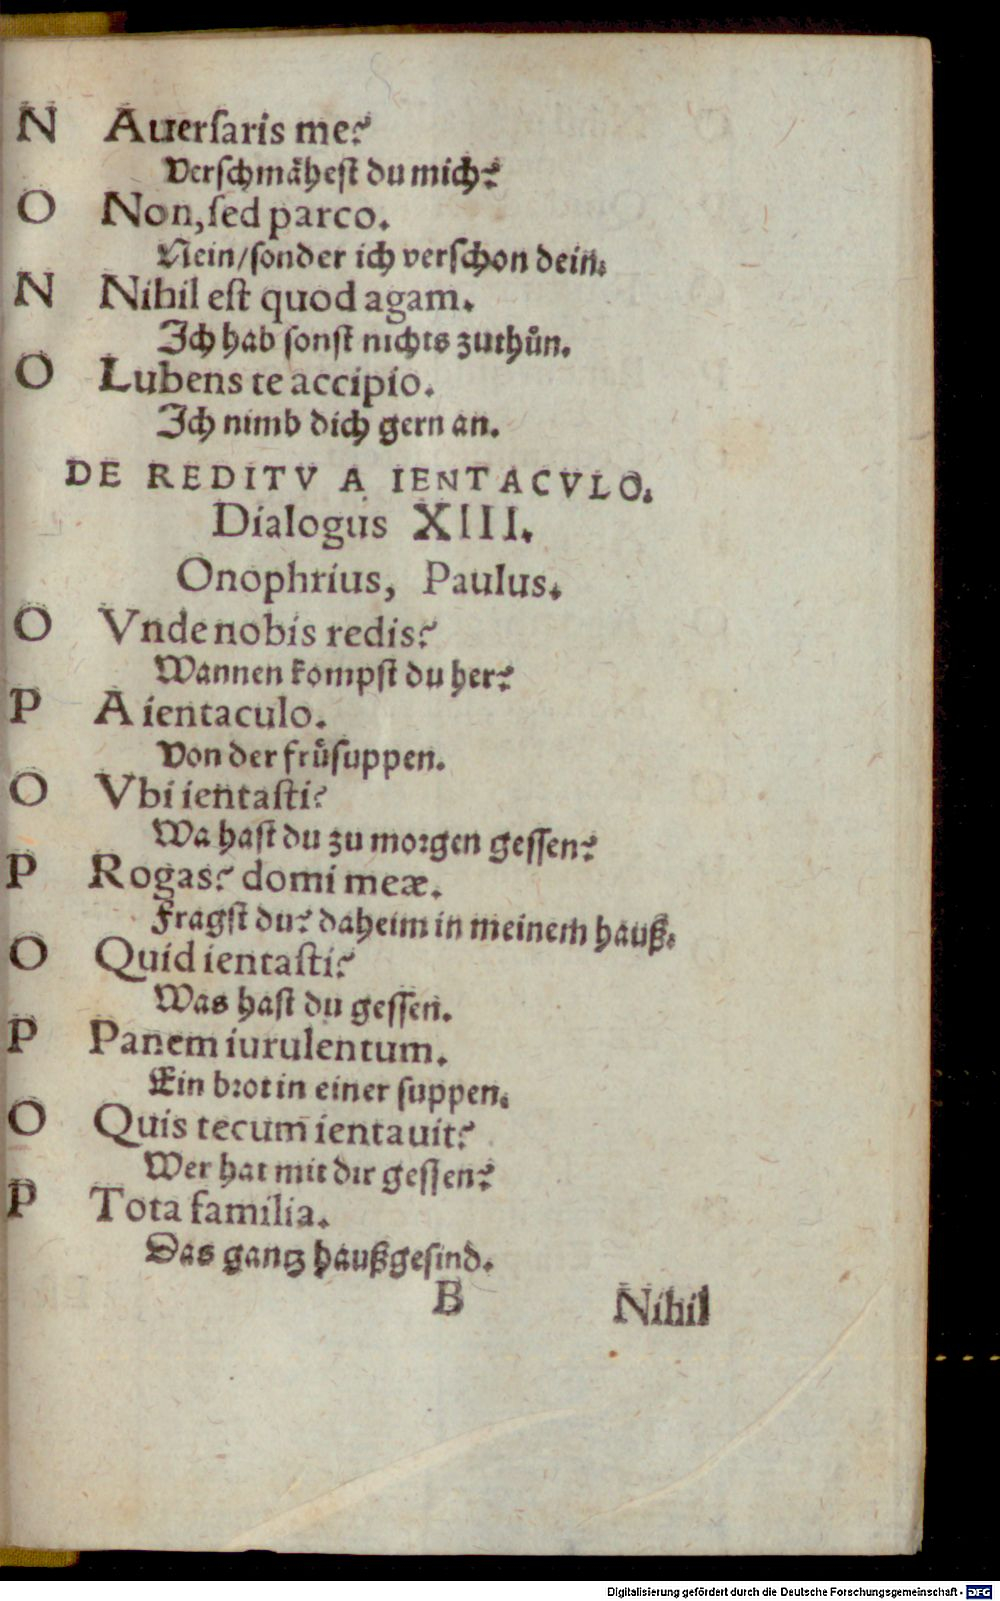 N Auersaris me?
Verschmähest du mich?
O Non, sed parco.
Nein/sonder ich verschon dein.
N Nihil est quod agam.
Ich hab sonst nichts zuthůn.
O Lubens te accipio.
Ich nimb dich gern an.
DE REDITV A IENTACVLO.
Dialogus XIII.
Onophrius, Paulus.
O Vnde nobis redis?
Wannen kompst du her?
P A ientaculo.
Von der frůsuppen.
O Vbi ientasti?
Wa hast du zu morgen gessen?
P Rogas? domi meæ.
Fragst du? daheim in meinem hauß.
O Quid ientasti?
Was hast du gessen.
P Panem iurulentum.
Ein brot in einer suppen.
O Quis tecum ientauit?
Wer hat mit dir gessen?
P Tota familia.
Das gantz haußgesind.
B Nihil
Digitalisierung gefördert durch die Deutsche Forschungsgemeinschaft - DFG